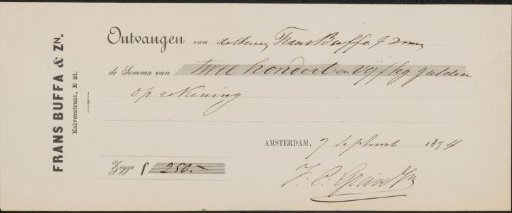 FRANS BUFFA & ZN.
Kalverstraat, E 21.
Ontvangen van Frans Buffa & Zonen
de Somma van twee hondert en vyftig gulden
op rekening
AMSTERDAM, 9 september 1874
Zegge f 250.-
J. C. Greive